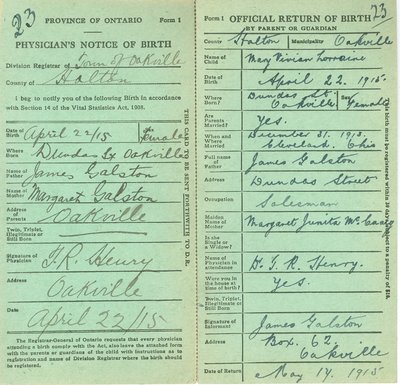 23
PROVINCE OF ONTARIO Form 1
PHYSICIAN'S NOTICE OF BIRTH
Division Registrar of Town of Oakville
County of Halton
I beg to notify you of the following Birth in accordance
with Section 14 of the Vital Statistics Act, 1908.
Date of Birth April 22/15 Female
Where Born Dundas St Oakville
Name of Father James Galston
Name of Mother Margaret Galston
Address of Parents Oakville
Twin, Triplet, Illegitimate or Still Born
Signature of Physician T. R. Henry
Address Oakville
Date April 22/15
The Registrar-General of Ontario requests that every physician
attending a birth comply with the Act, also leave the attached form
with the parents or guardians of the child with instructions as to
registration and name of Division Registrar where the birth should
be registered.
THIS CARD TO BE SENT FORTHWITH TO D.R.
23
Form 1 OFFICIAL RETURN OF BIRTH
BY PARENT OR GUARDIAN
County Halton Municipality Oakville
Name of Child Mary Vivian Lorraine
Date of Birth April 22. 1915.
Where Born? Dundas St. Oakville Sex Female
Are Parents Married? Yes.
When and Where Married December 31. 1913. Cleveland, Ohio
Full name of Father James Galston
Address Dundas Street
Occupation Salesman
Maiden Name of Mother Margaret Junita
Is she Single or a Widow?
Name of Physician in attendance Dr. T. R. Henry.
Were you in the house at time of birth? Yes.
Twin, Triplet, Illegitimate or Still Born
Signature of Informant James Galston
Address Box. 62. Oakville
Date of Return May 14. 1915
The birth must be registered within 30 days subject to a penalty of